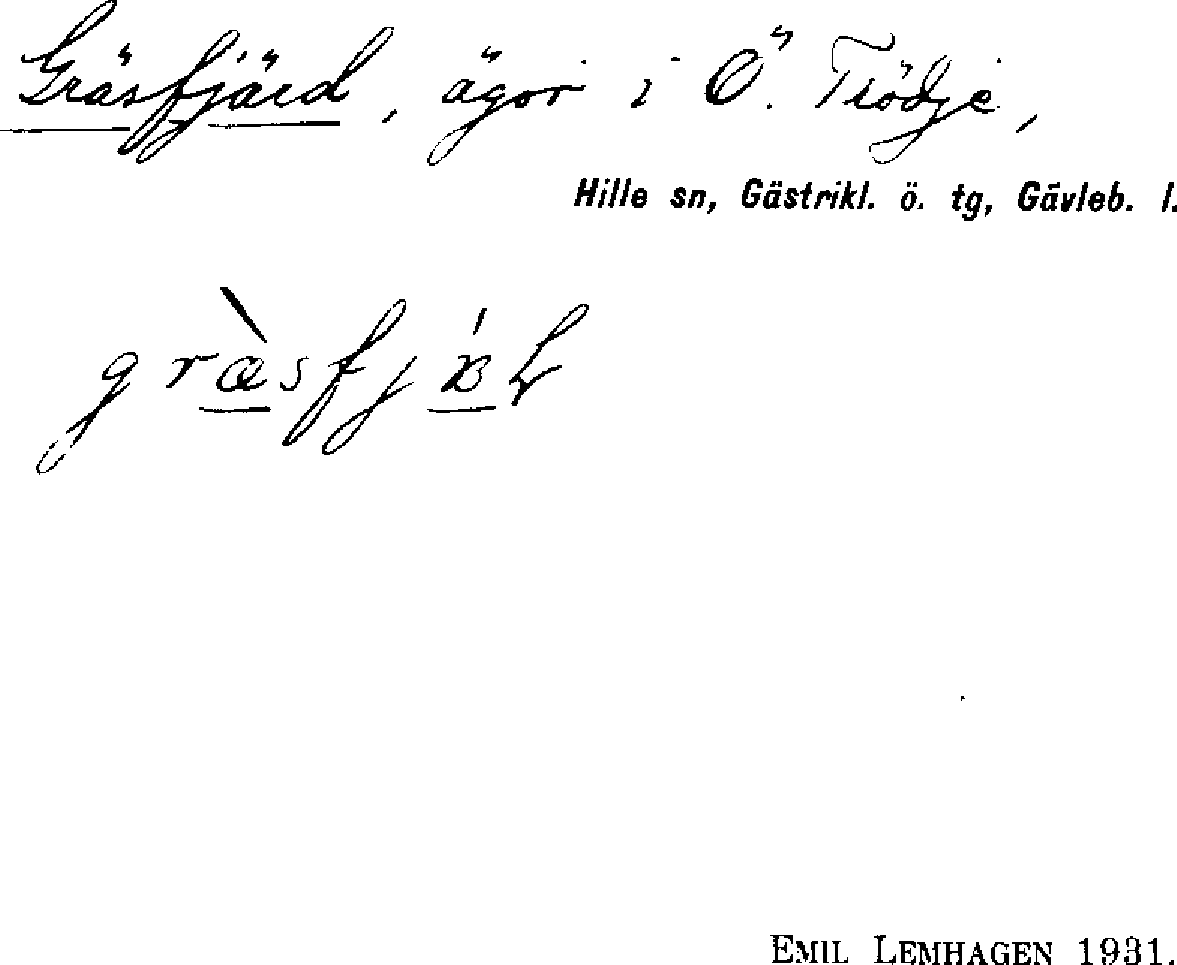 Gräsfjärd, ägor i Ö. Trödje,
Hille sn, Gästrikl. ö. tg, Gävleb. l.
EMIL LEMHAGEN 1931.